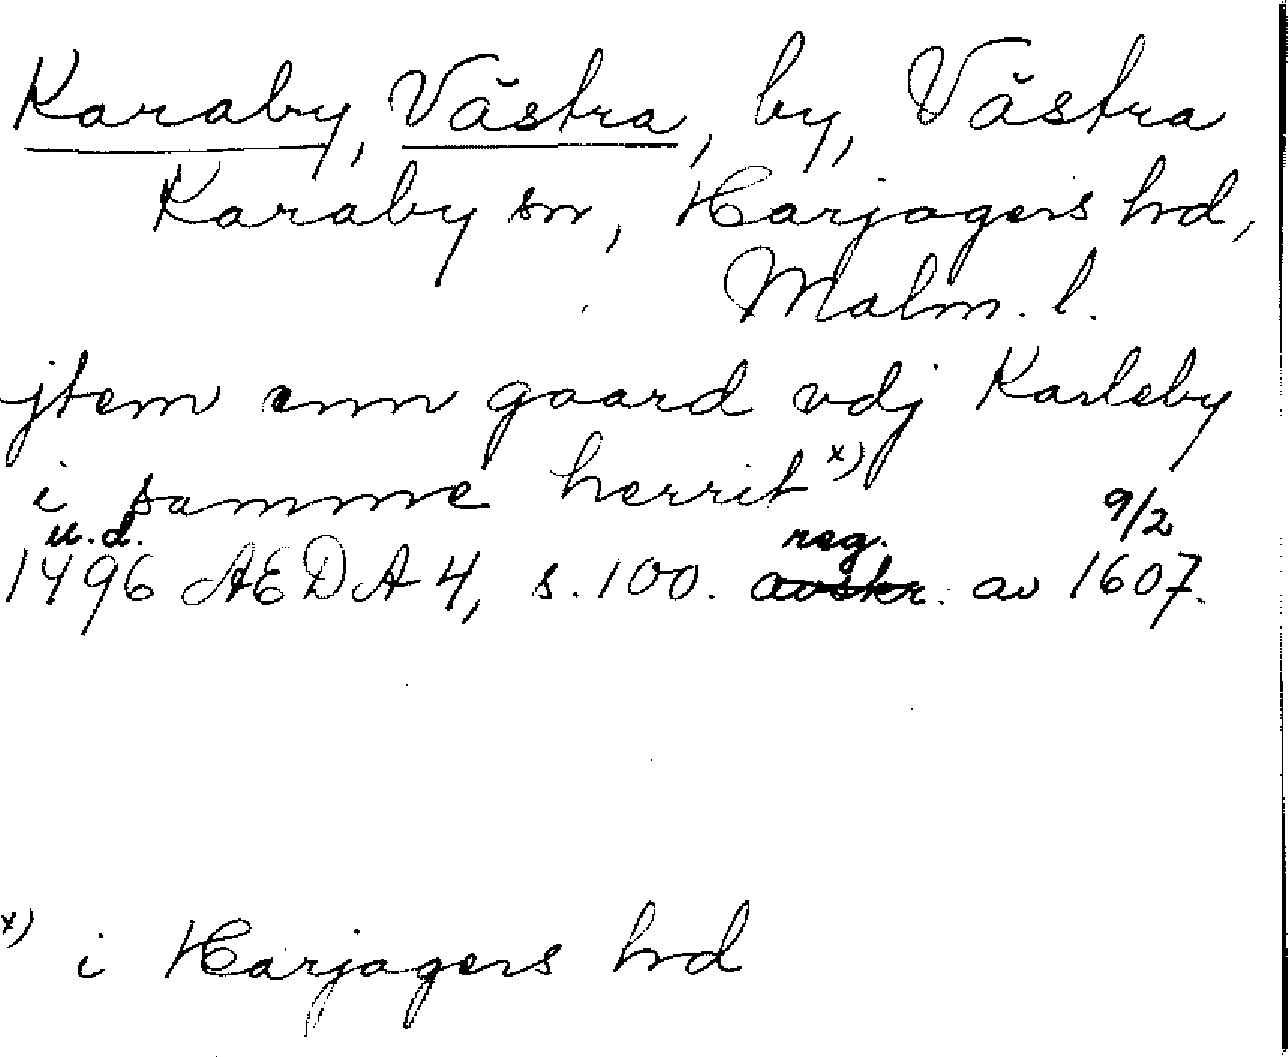 Karaby, Västra, by, Västra
Karaby sn, Harjagers hd,
Malm. l.
jtem enn gaard vdj Karleby
i samme herrit x)
u.d. reg. 9/2
1496 AEDA 4, s. 100. avskr. av 1607.
x) i Harjagers hd